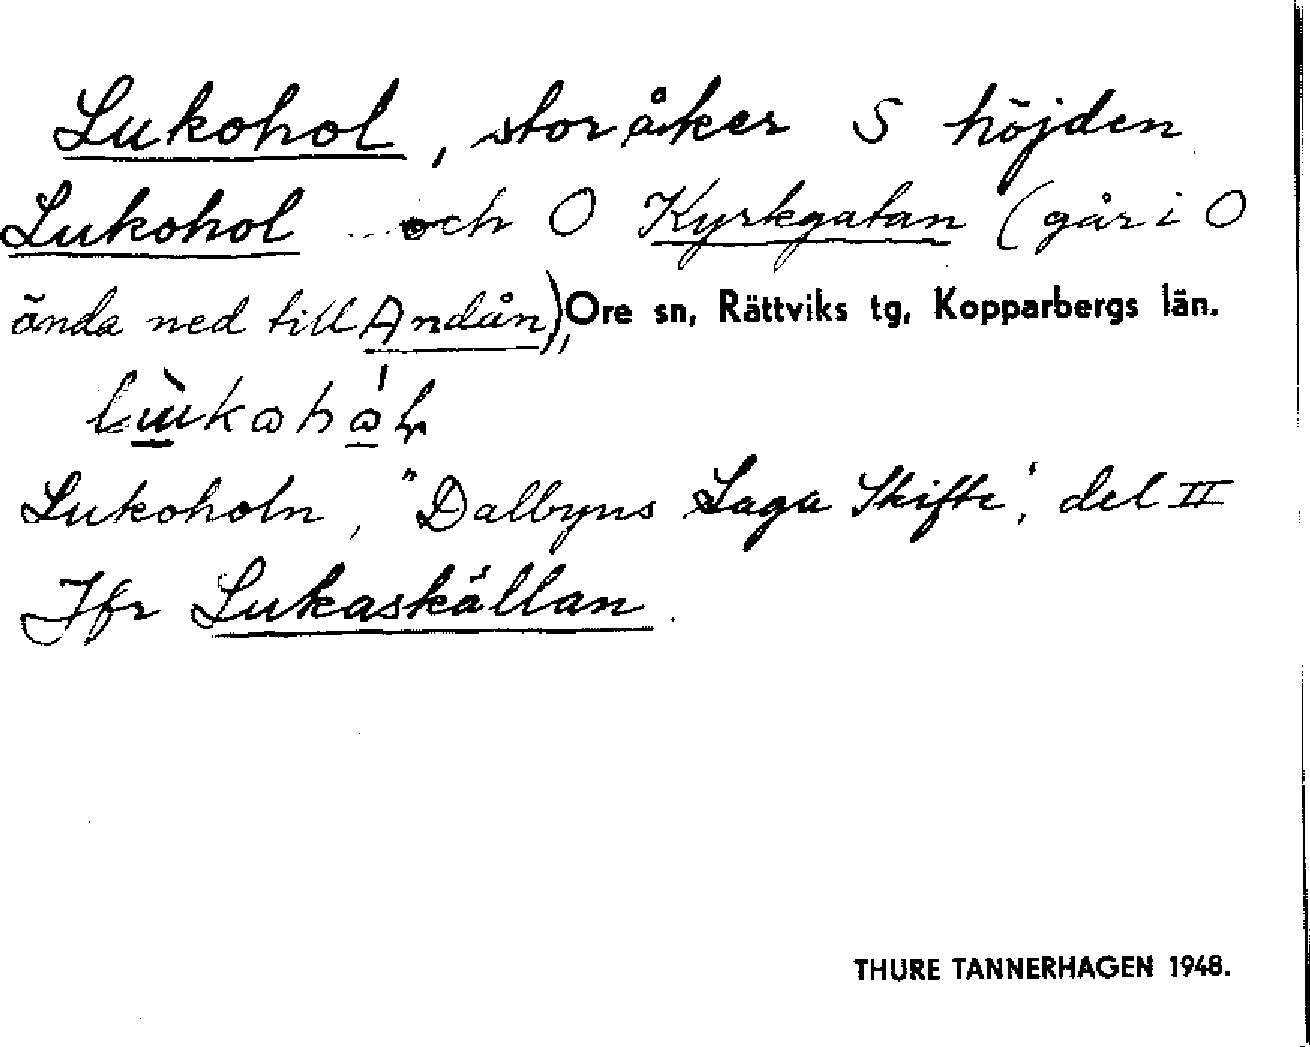 Lukohol, stor åker S höjden
Lukohol och O Kyrkgatan (går i O
ända ned till Andån), Ore sn, Rättviks tg, Kopparbergs län.
Lukoholn, "Dalbyns Laga Skifte", del II
Jfr Lukaskällan.
THURE TANNERHAGEN 1948.